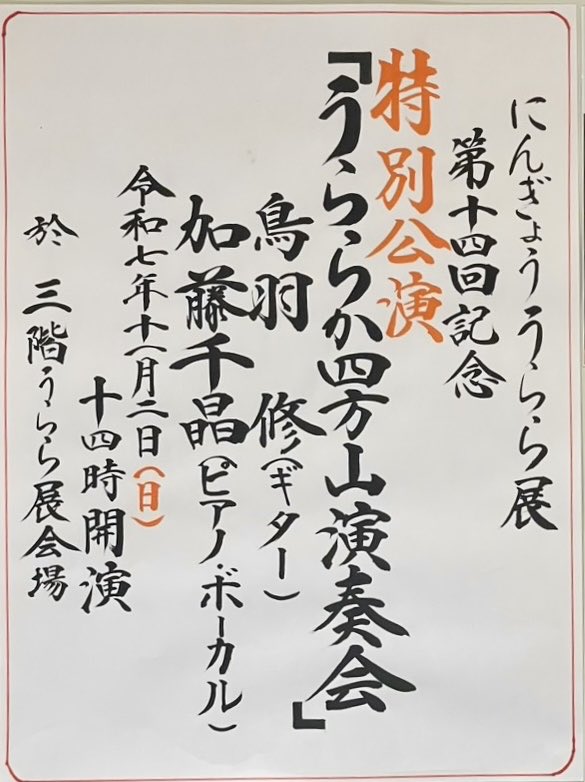 にんぎょううらら展
第十四回記念
特別公演
『うららか四方山演奏会』
鳥羽 修(ギター)
加藤千晶(ピアノ・ボーカル)
令和七年十一月二日(日)
十四時開演
於 三階うらら展会場